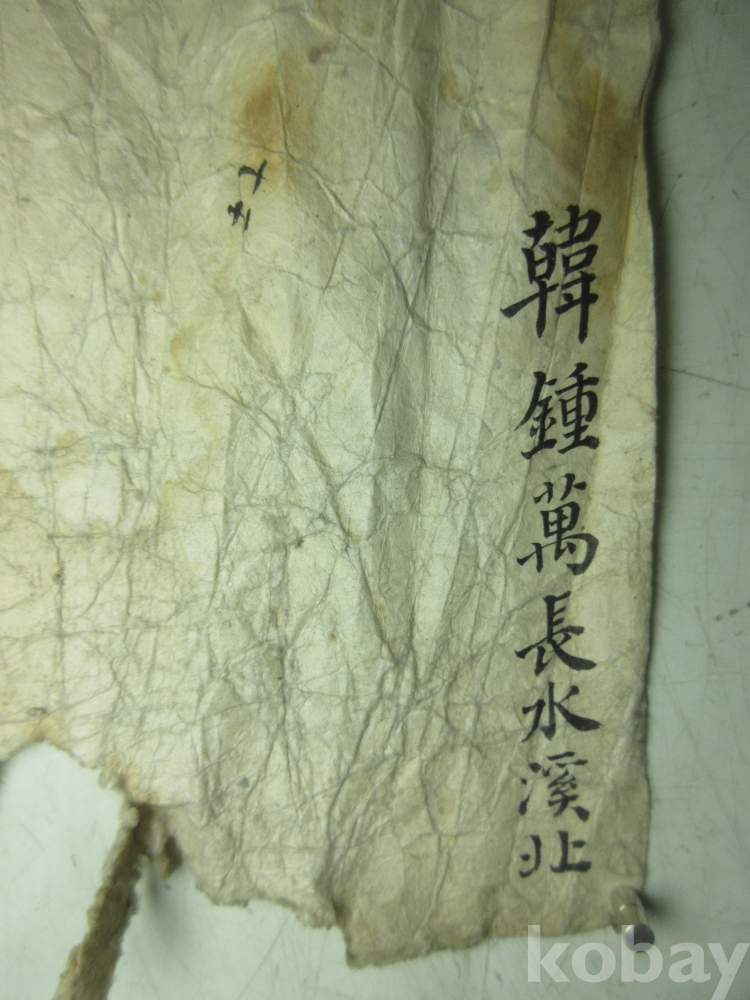 韓鍾萬長水溪北
kobay